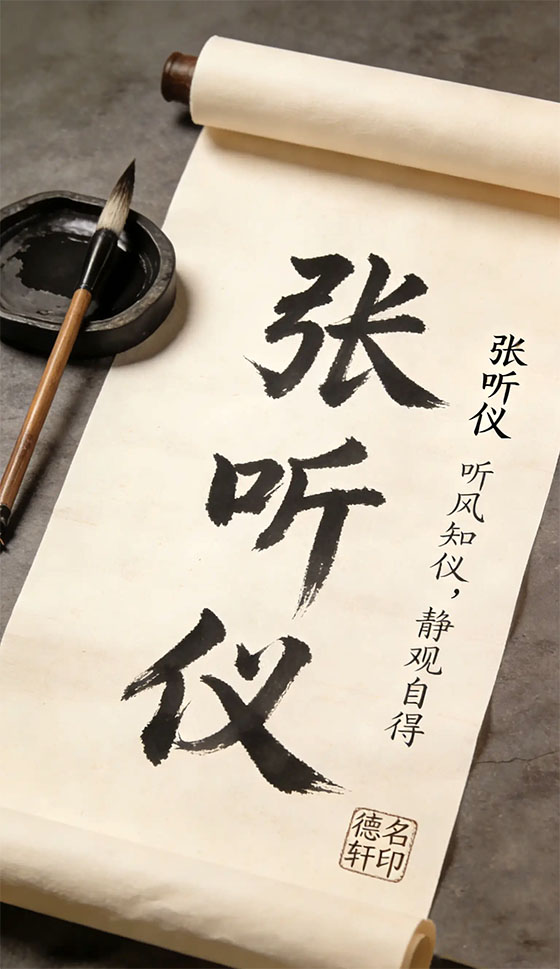 张听仪
张听仪
听风知仪，静观自得
德名
轩印